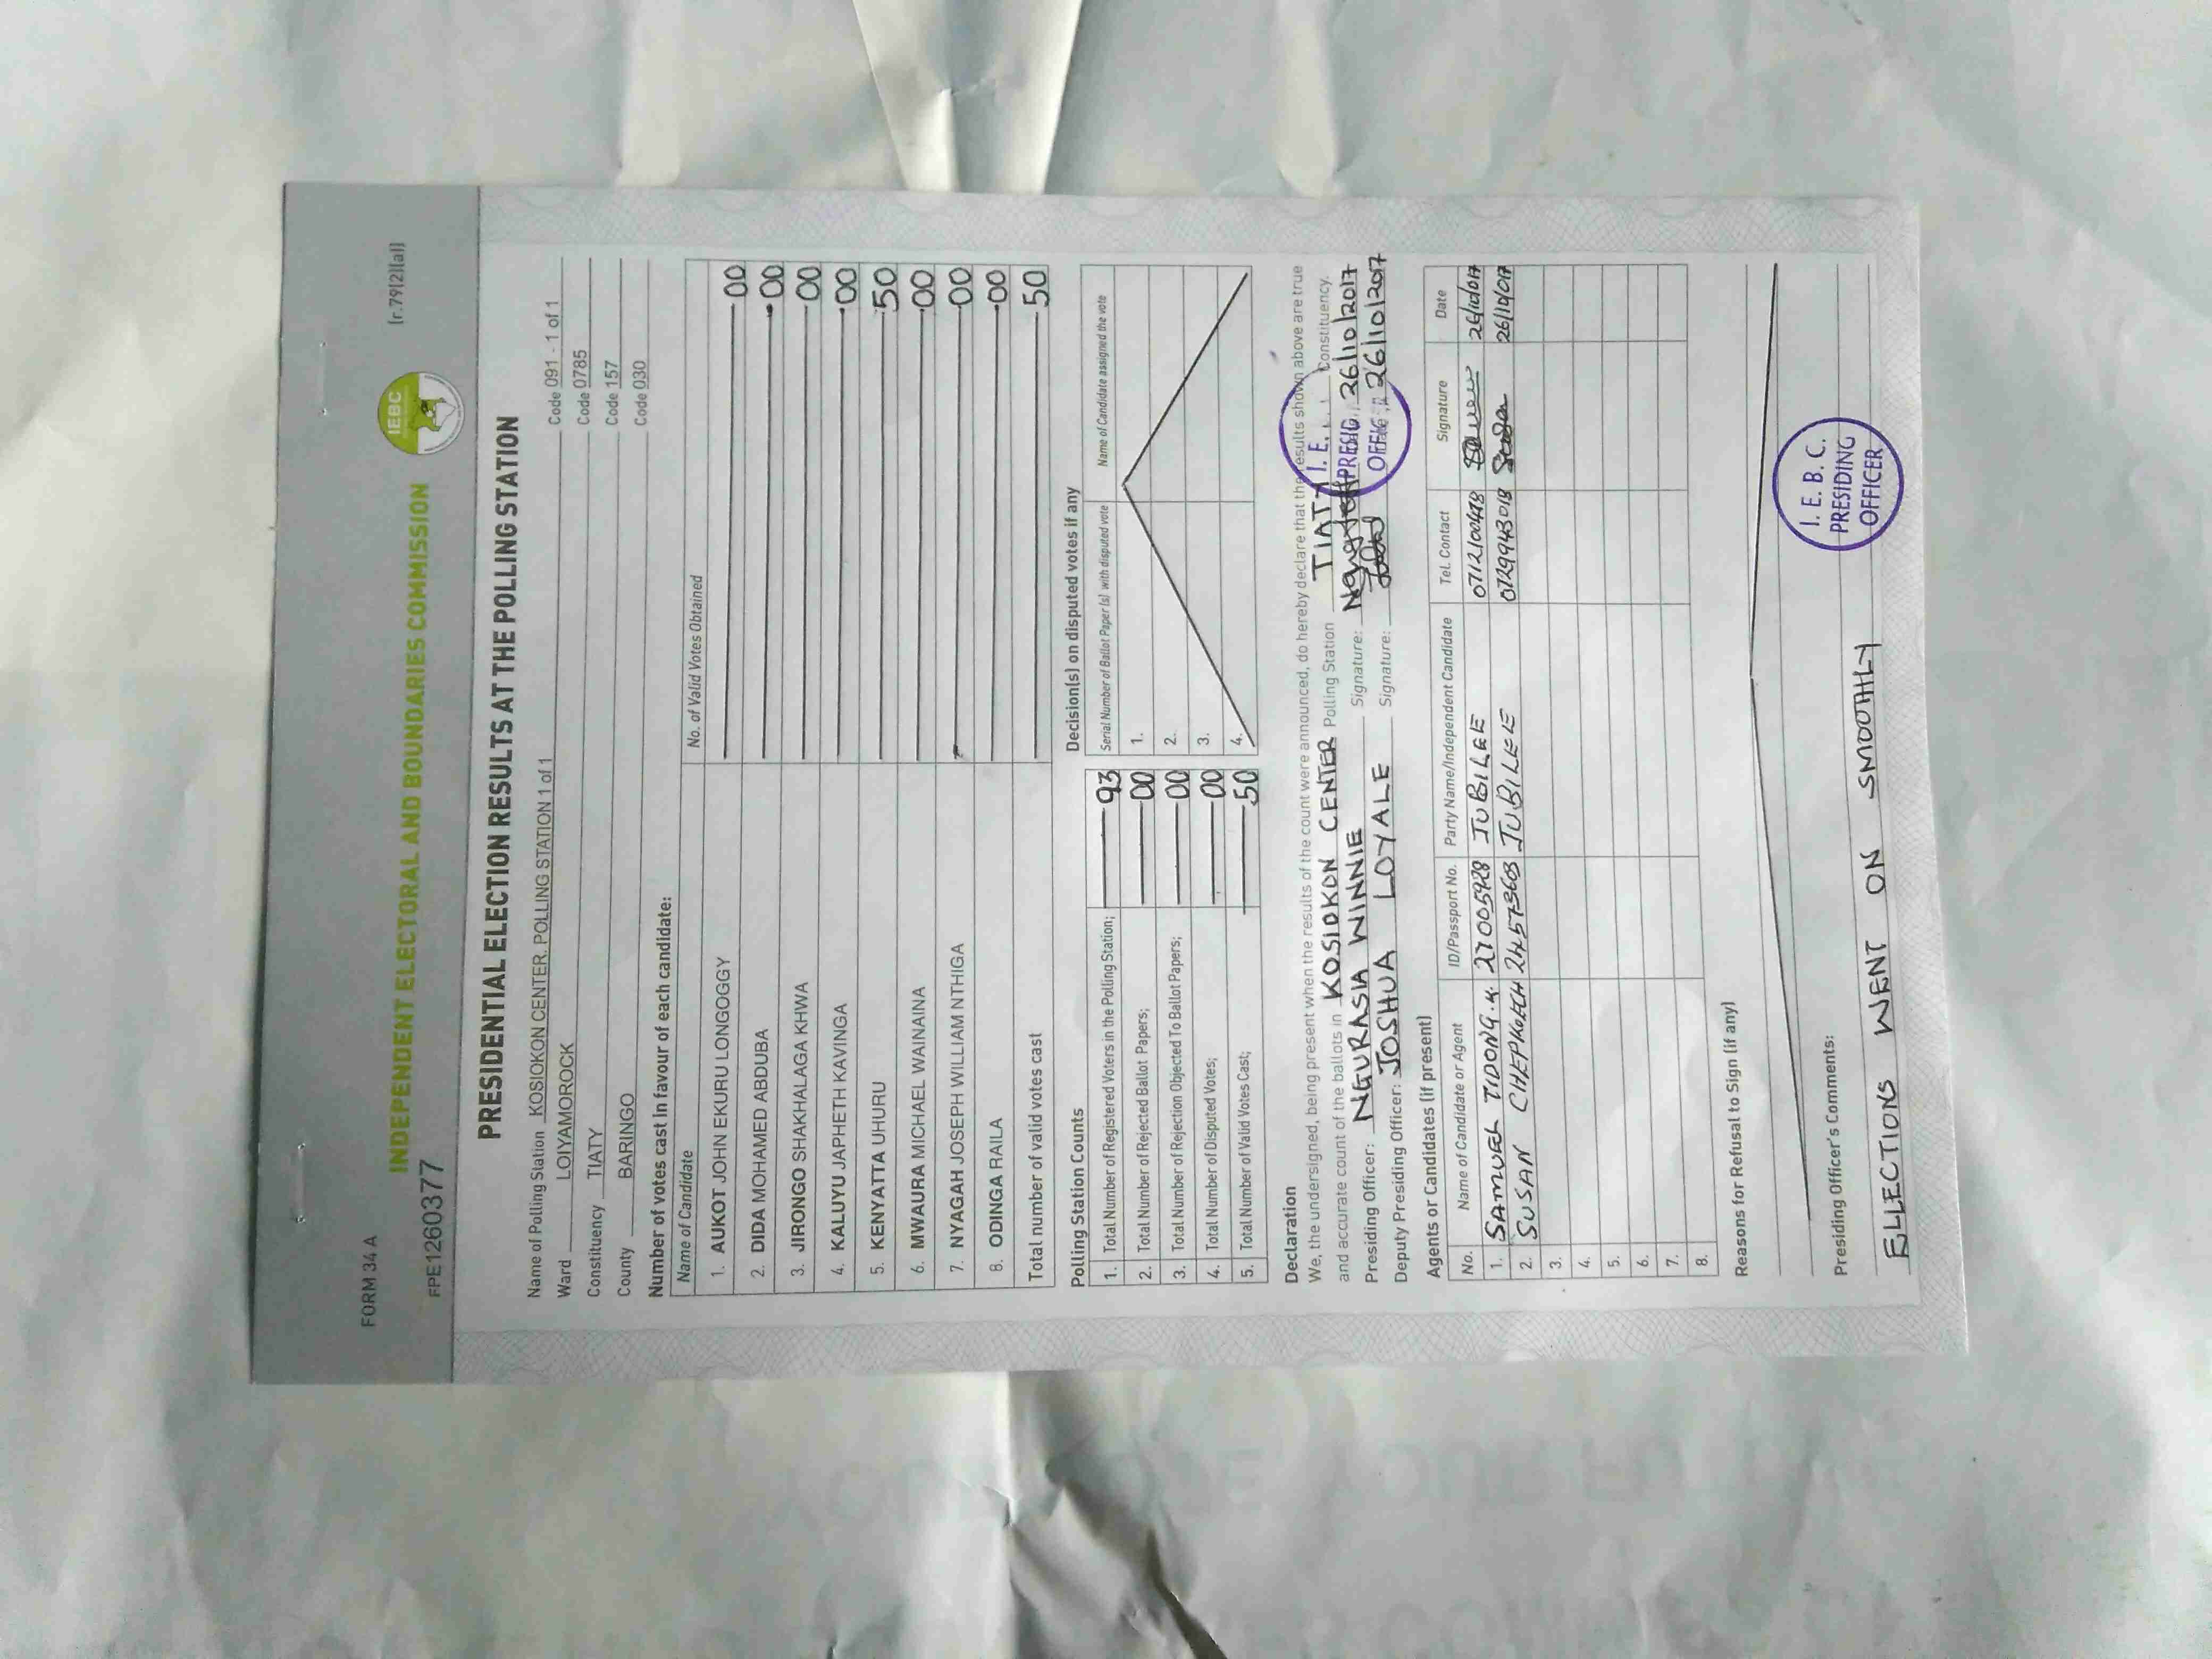 FORM 34 A
[r.79(2)(a)]
IEBC
INDEPENDENT ELECTORAL AND BOUNDARIES COMMISSION
FPE1260377
PRESIDENTIAL ELECTION RESULTS AT THE POLLING STATION
Name of Polling Station KOSIOKON CENTER. POLLING STATION 1 of 1 Code 091 - 1 of 1
Ward LOIYAMOROCK Code 0785
Constituency TIATY Code 157
County BARINGO Code 030
Number of votes cast in favour of each candidate:
Name of Candidate No. of Valid Votes Obtained
1. AUKOT JOHN EKURU LONGOGGY 00
2. DIDA MOHAMED ABDUBA 00
3. JIRONGO SHAKHALAGA KHWA 00
4. KALUYU JAPHETH KAVINGA 00
5. KENYATTA UHURU 50
6. MWAURA MICHAEL WAINAINA 00
7. NYAGAH JOSEPH WILLIAM NTHIGA 00
8. ODINGA RAILA 00
Total number of valid votes cast 50
Polling Station Counts
1. Total Number of Registered Voters in the Polling Station; 93
2. Total Number of Rejected Ballot Papers; 00
3. Total Number of Rejection Objected To Ballot Papers; 00
4. Total Number of Disputed Votes; 00
5. Total Number of Valid Votes Cast; 50
Decision(s) on disputed votes if any
Serial Number of Ballot Paper (s) with disputed vote Name of Candidate assigned the vote
1.
2.
3.
4.
Declaration
We, the undersigned, being present when the results of the count were announced, do hereby declare that the results shown above are true
and accurate count of the ballots in KOSIOKON CENTER Polling Station TIATY Constituency.
Presiding Officer: NGURASIA WINNIE Signature: 26/10/2017
Deputy Presiding Officer: JOSHUA LOYALE Signature: 26/10/2017
Agents or Candidates (if present)
No. Name of Candidate or Agent ID/Passport No. Party Name/Independent Candidate Tel. Contact Signature Date
1. SAMUEL TIDONG.K. 27005928 JUBILEE 0712100478 26/10/017
2. SUSAN CHEPKOECH 24573603 JUBILEE 0729943018 Susan 26/10/017
3.
4.
5.
6.
7.
8.
Reasons for Refusal to Sign (if any)
Presiding Officer's Comments:
ELLECTIONS WENT ON SMOOTHLY
I. E. B. C.
PRESIDING
OFFICER